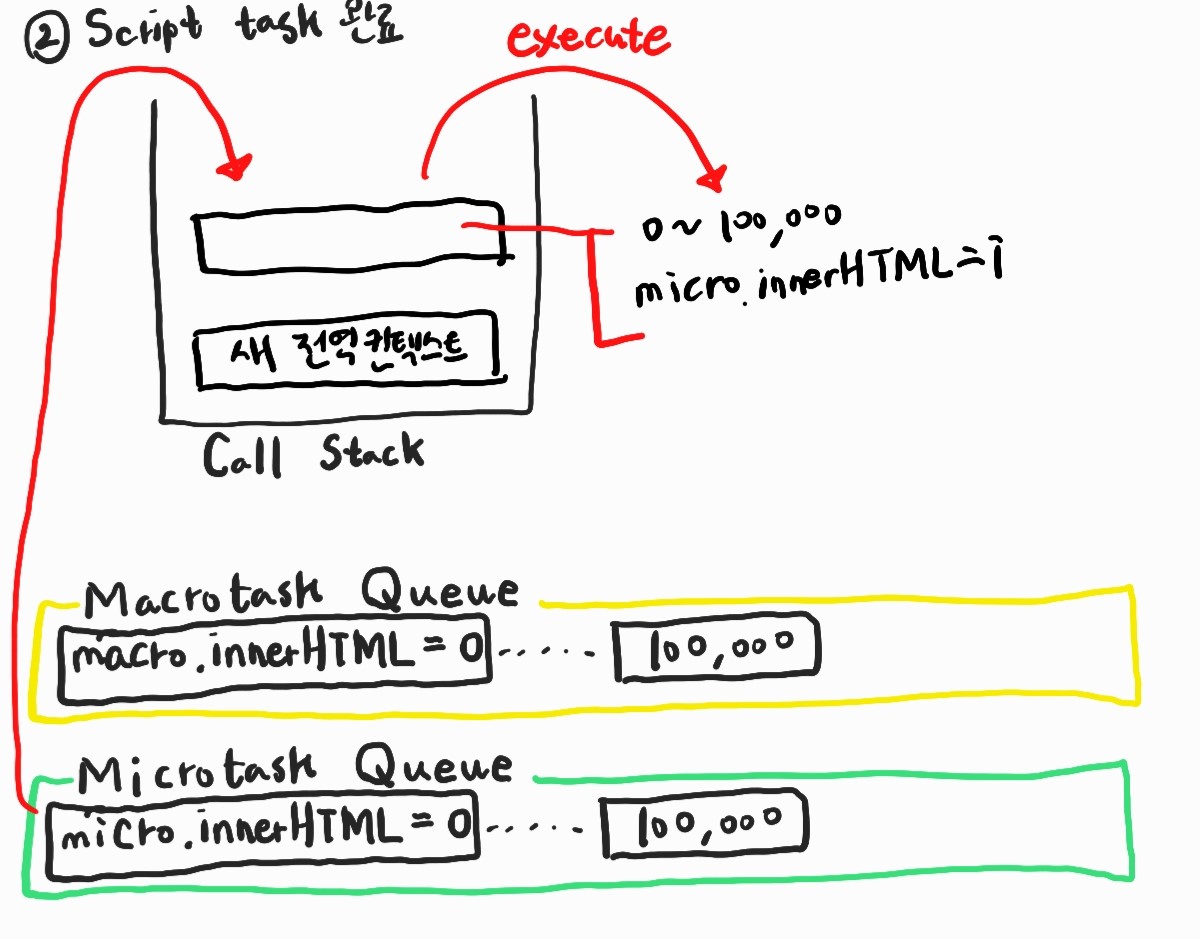 ② Script task 완료
execute
0 ~ 100,000
micro.innerHTML = i
새 전역 칸텍스트
Call Stack
Macrotask Queue
macro.innerHTML = 0 ..... 100,000
Microtask Queue
micro.innerHTML = 0 ..... 100,000